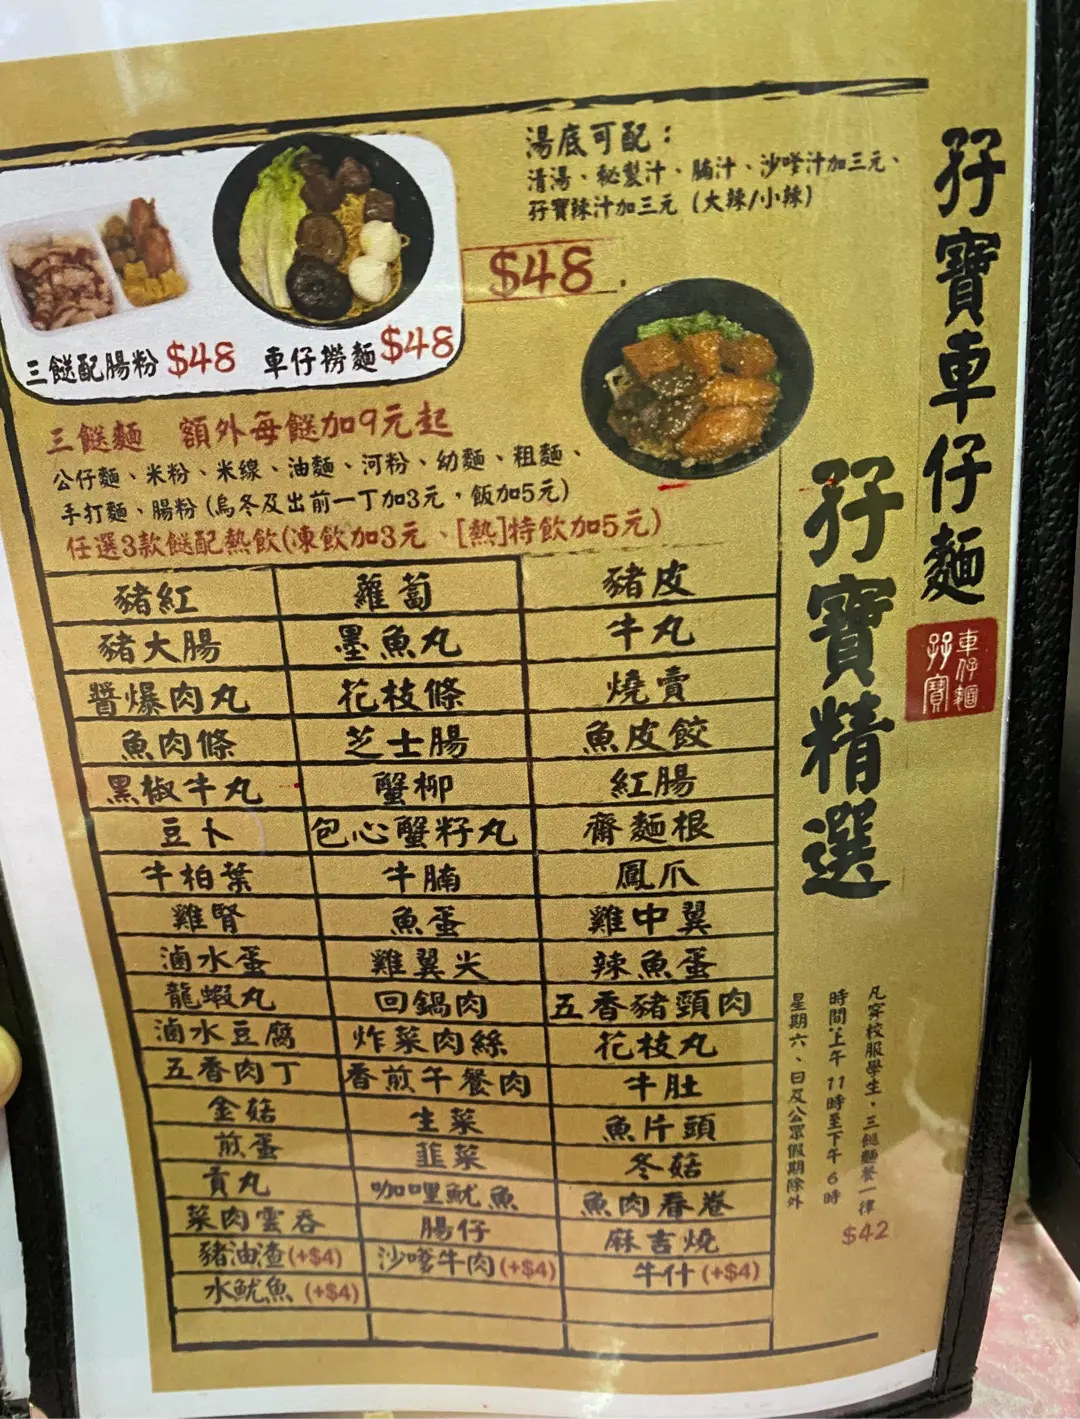 孖寶車仔麵
車仔麵
孖寶
孖寶精選
湯底可配：
清湯、秘製汁、腩汁、沙嗲汁加三元、
孖寶辣汁加三元（大辣/小辣）
$48
三餸配腸粉 $48 車仔撈麵 $48
三餸麵 額外每餸加9元起
公仔麵、米粉、米線、油麵、河粉、幼麵、粗麵、
手打麵、腸粉(烏冬及出前一丁加3元，飯加5元)
任選3款餸配熱飲(凍飲加3元、[熱]特飲加5元)
豬紅 蘿蔔 豬皮
豬大腸 墨魚丸 牛丸
醬爆肉丸 花枝條 燒賣
魚肉條 芝士腸 魚皮餃
黑椒牛丸 蟹柳 紅腸
豆卜 包心蟹籽丸 齋麵根
牛柏葉 牛腩 鳳爪
雞腎 魚蛋 雞中翼
滷水蛋 雞翼尖 辣魚蛋
龍蝦丸 回鍋肉 五香豬頸肉
滷水豆腐 炸菜肉絲 花枝丸
五香肉丁 香煎午餐肉 牛肚
金菇 生菜 魚片頭
煎蛋 韮菜 冬菇
貢丸 咖哩魷魚 魚肉春卷
菜肉雲吞 腸仔 麻吉燒
豬油渣(+$4) 沙嗲牛肉(+$4) 牛什(+$4)
水魷魚(+$4)
凡穿校服學生，三餸麵餐一律$42
時間：上午11時至下午6時
星期六、日及公眾假期除外